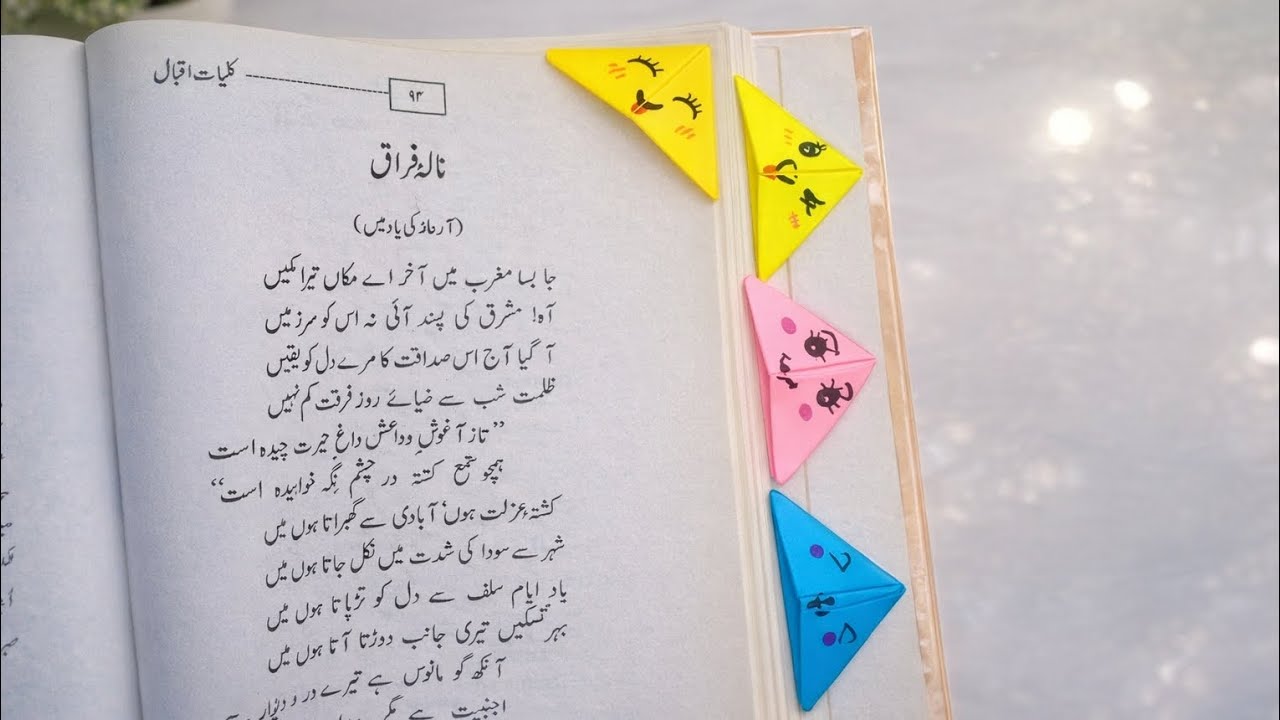 کلیات اقبال
۹۴
نالۂ فراق
(آرنلڈ کی یاد میں)
جا بسا مغرب میں آخر اے مکاں تیرا مکیں
آہ! مشرق کی پسند آئی نہ اس کو سرزمیں
آ گیا آج اس صداقت کا مرے دل کو یقیں
ظلمت شب سے ضیائے روز فرقت کم نہیں
”تاز آغوشِ وداعش داغِ حیرت چیدہ است
ہمچو شمع کشتہ در چشم نگہ خوابیدہ است“
کشتۂ عزلت ہوں‘ آبادی سے گھبراتا ہوں میں
شہر سے سودا کی شدت میں نکل جاتا ہوں میں
یاد ایام سلف سے دل کو تڑپاتا ہوں میں
بہر تسکیں تیری جانب دوڑتا آتا ہوں میں
آنکھ گو مانوس ہے تیرے در و دیوار
اجنبیت ہے مگر